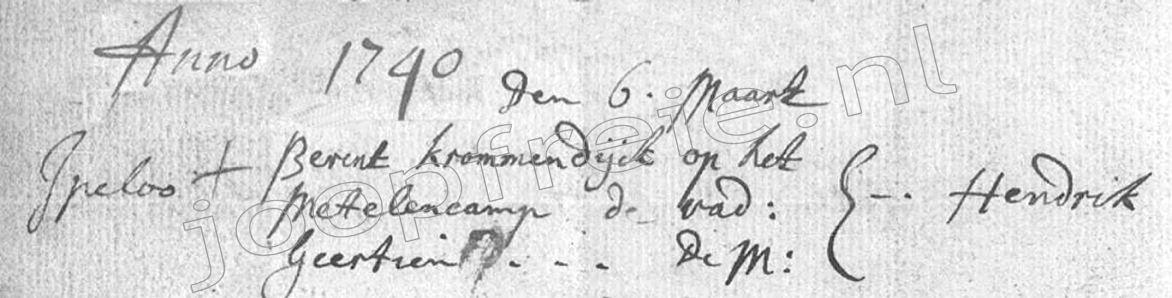 Anno 1740
Den 6. Maart
Ypeloo + Berent krommendijck op het
Metelencamp de vad: {-. Hendrik
Geertien . . . . De M:
joopfreie.nl